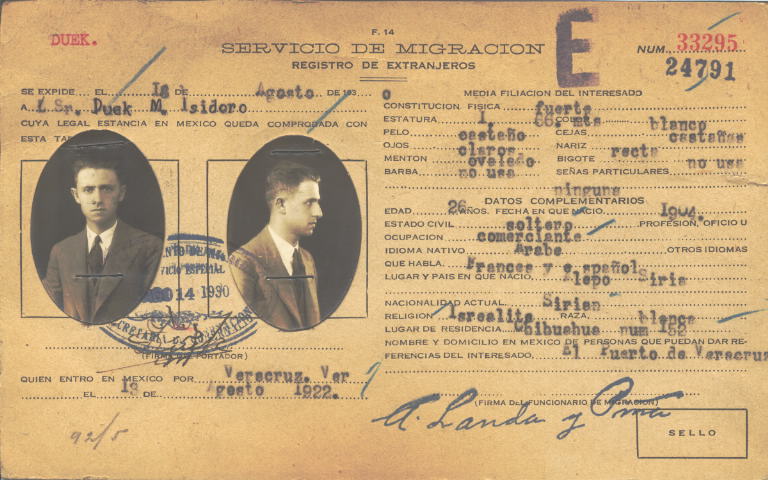 DUEK.
F. 14
SERVICIO DE MIGRACION
REGISTRO DE EXTRANJEROS
E
NUM. 33295
24791
SE EXPIDE EL 18 DE Agosto DE 1930
A l Sr. Duek M. Isidoro
CUYA LEGAL ESTANCIA EN MEXICO QUEDA COMPROBADA CON
ESTA
AGO 14 1930
(FIRMA PORTADOR)
QUIEN ENTRO EN MEXICO POR Veracruz. Ver
EL 13 DE Agosto 1922.
92/5
MEDIA FILIACION DEL INTERESADO
CONSTITUCION FISICA fuerte
ESTATURA I. 66. mts blanco
PELO castaño CEJAS castañas
OJOS claros NARIZ recta
MENTON ovalado BIGOTE no usa
BARBA no usa SEÑAS PARTICULARES
ninguna
DATOS COMPLEMENTARIOS
EDAD 26 AÑOS. FECHA EN QUE NACIO. 1904.
ESTADO CIVIL soltero PROFESION, OFICIO U
OCUPACION comerciante
IDIOMA NATIVO Arabe OTROS IDIOMAS
QUE HABLA. Frances y español
LUGAR Y PAIS EN QUE NACIO. Alepo Siria
NACIONALIDAD ACTUAL. Sirian
RELIGION Israelita RAZA. blanca
LUGAR DE RESIDENCIA. Chihuahua num 152
NOMBRE Y DOMICILIO EN MEXICO DE PERSONAS QUE PUEDAN DAR RE-
FERENCIAS DEL INTERESADO, El Puerto de Veracruz
(FIRMA DEL FUNCIONARIO DE MIGRACION)
A. Landa y Piña
SELLO